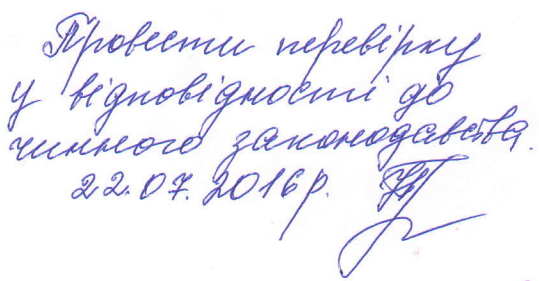 Провести перевірку
у відповідності до
чинного законодавства.
22.07.2016р.